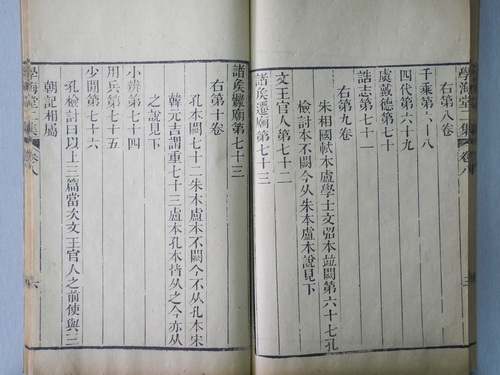 學海堂二集
卷八
右第八卷
千乘第六十八
四代第六十九
虞戴德第七十
誥志第七十一
右第九卷
朱相國軾本盧學士文弨本並闕第六十七孔
檢討本不闕今从朱本盧本說見下
文王官人第七十二
諸矦遷廟第七十三
諸矦釁廟第七十三
右第十卷
孔本闕七十二朱本盧本不闕今不从孔本宋
韓元吉謂重七十三盧本孔本皆从之今亦从
之說見下
小辨第七十四
用兵第七十五
少閒第七十六
孔檢討曰以上三篇當次文王官人之前使與三
朝記相屬
學海堂二集
卷八
六